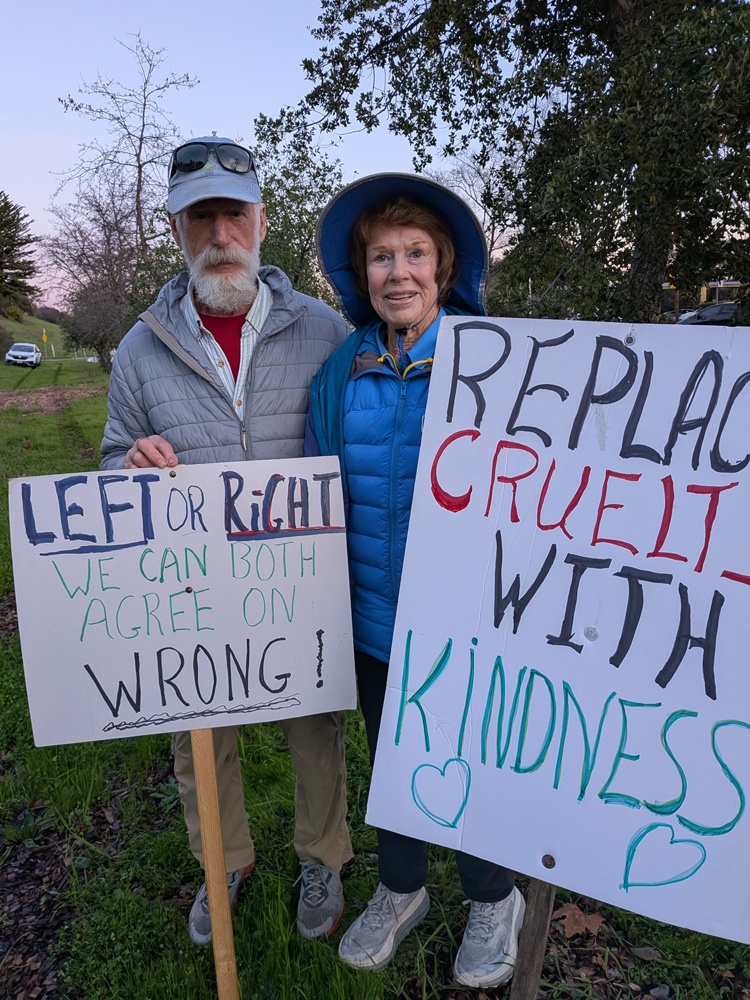 LEFT OR RiGHT
WE CAN BOTH
AGREE ON
WRONG!
REPLAC
CRUELT
WITH
KiNDNESS